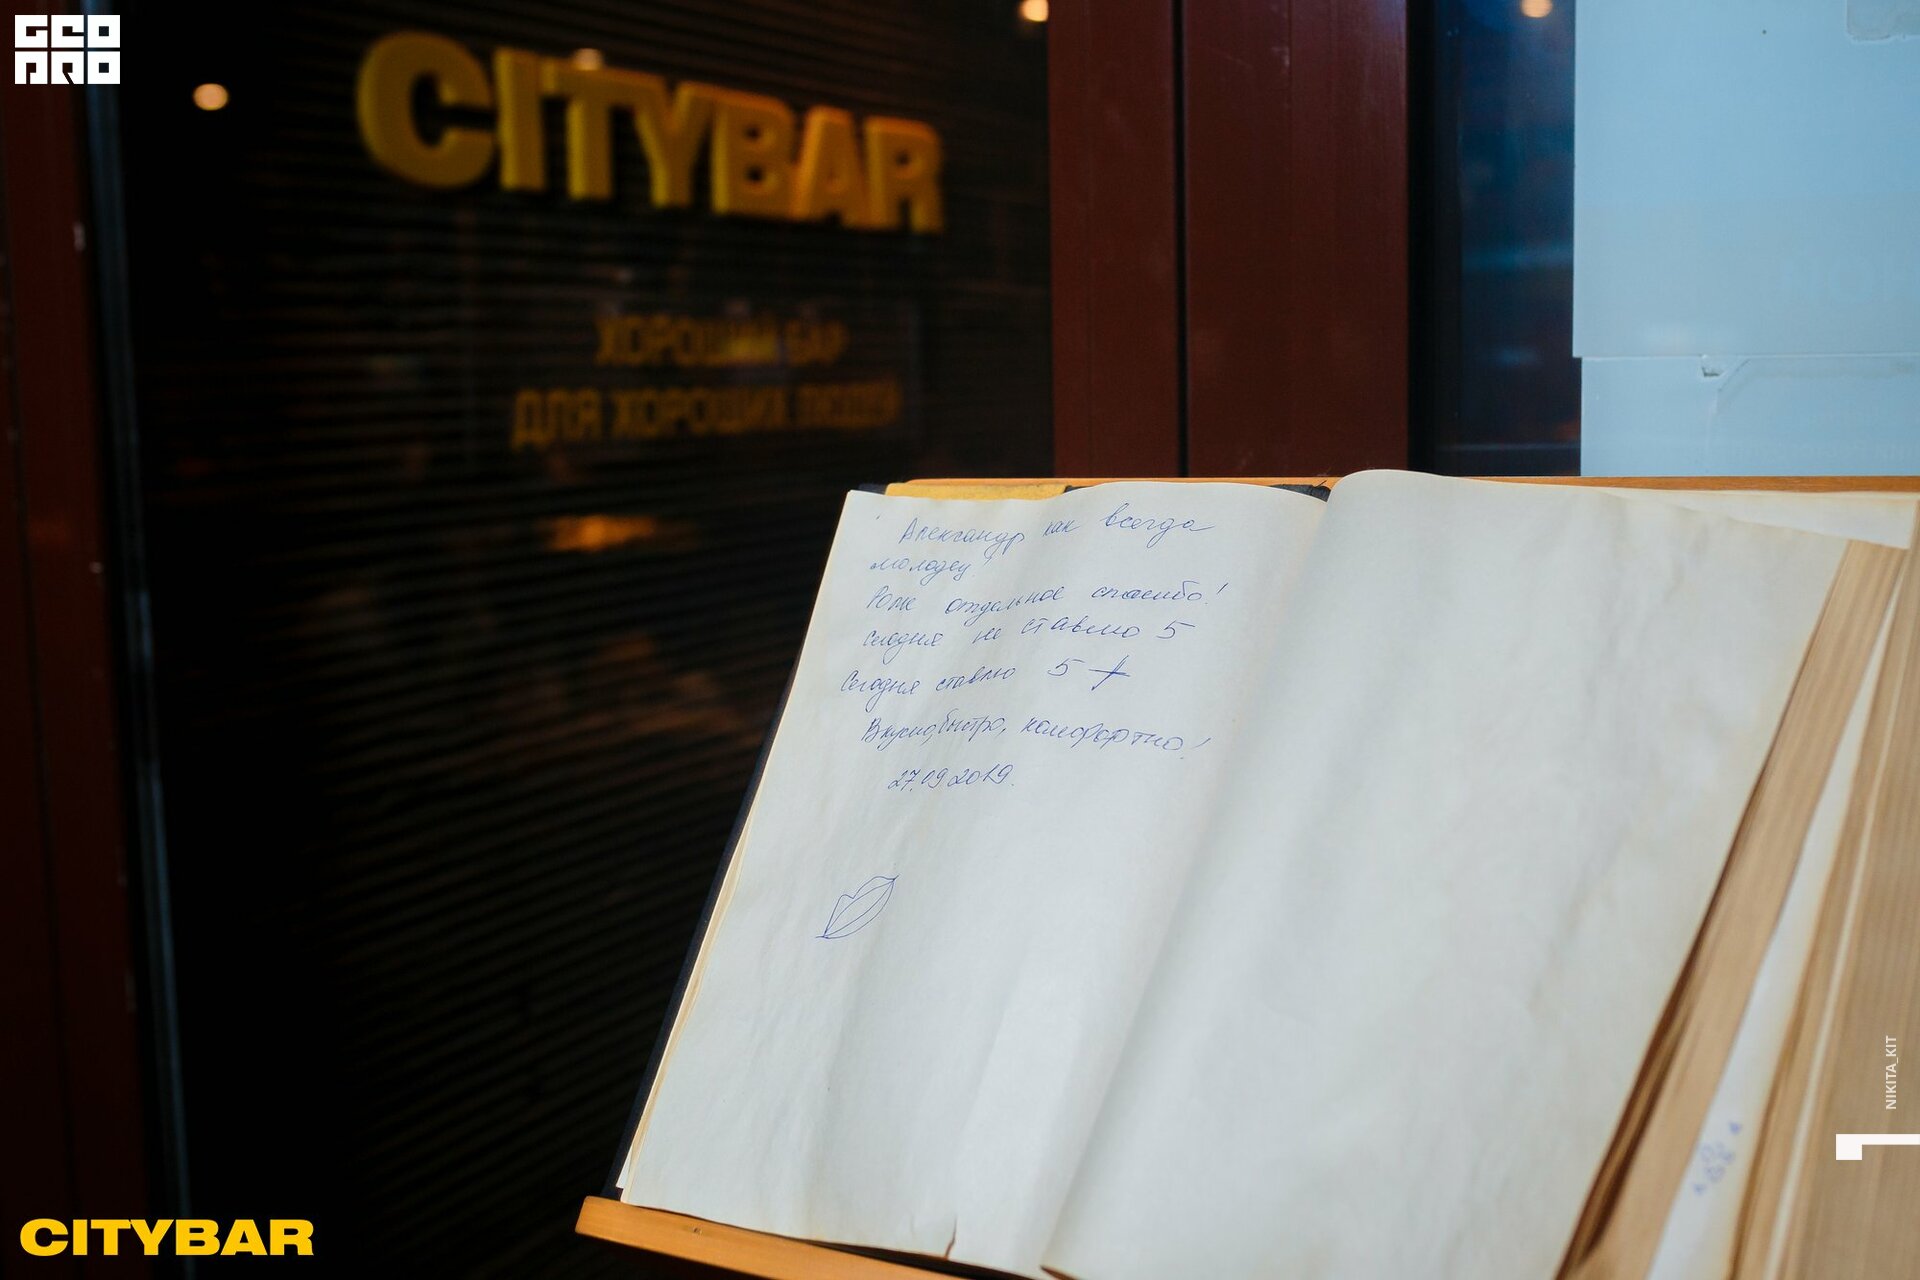 GEO
PRO
CITYBAR
ХОРОШИЙ БАР
ДЛЯ ХОРОШИХ ЛЮДЕЙ
Александр как всегда
молодец!
Роме отдельное спасибо!
Сегодня не ставлю 5
Сегодня ставлю 5+
Вкусно, быстро, комфортно!
27.09.2019.
NIKITA_KIT
CITYBAR